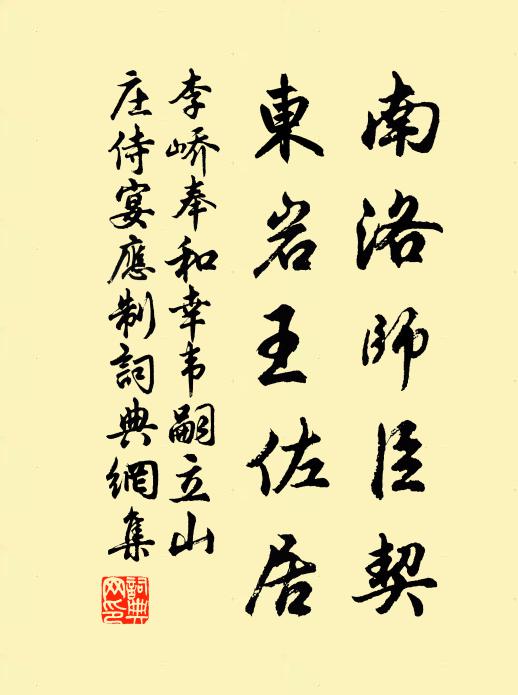 南洛师臣契
東岩王佐居
李峤奉和幸韦嗣立山
庄侍宴應制詞典網集
詞典网印